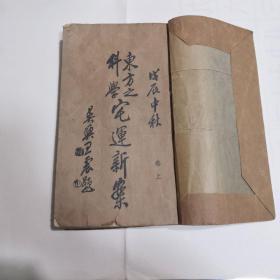 戊辰中秋
卷上
東方之
科學
宅運新案
吳興王震題